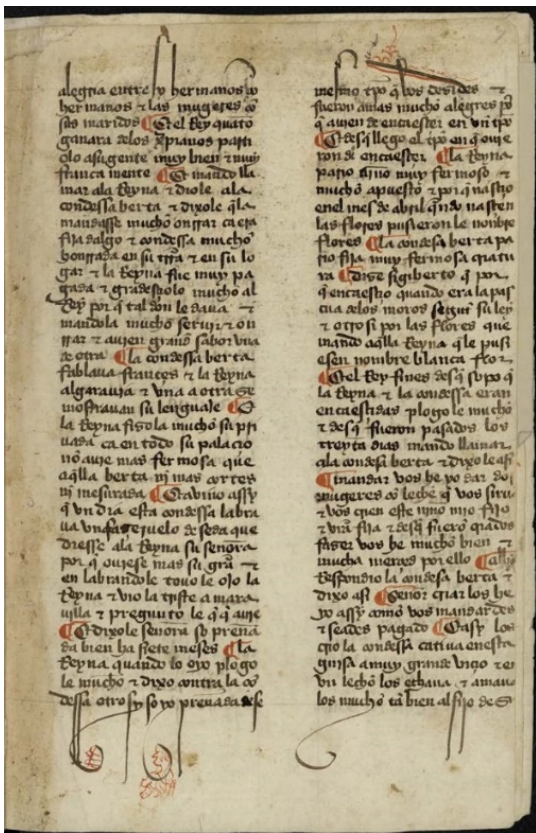 alegria entre sy hermanos cō
hermanos & las mugeres cō
sus maridos ¶ & el Rey quāto
ganara delos xp̄ianos parti
olo asugente muy bien & muy
franca mente ¶ & mando lla
mar ala Reyna & diole ala
condessa berta & dixole q̄ la
mandasse mucho onrrar ca era
fija dalgo & condessa mucho
honrrada en su tr̄ra & en su lo
gar & la Reyna fue muy pa
gada & gradesçiolo mucho al
Rey por q̄ tal don le daua &
mandola mucho seruir & on
rrar & auien grand sabor vna
de otra ¶ la condessa berta
fablaua frances & la Reyna
algarauia & vna a otra se
mostrauan su lenguaje ¶ &
la Reyna fizola mucho su pri
uada ca en todo su palaçio
nō auie mas fermosa que
aq̄lla berta nj mas cortes
nj mesurada ¶ & avino assy
q̄ vn dia esta condessa labra
ua vn façeruelo de seda que
diesse ala Reyna su señora
por q̄ ouiese mas su grā &
en labrandole touo le ojo la
Reyna & vio la triste a mara
villa & pregunto le q̄ q̄ auie
¶ & dixole señora so preña
da bien ha siete meses ¶ la
Reyna quando lo oyo plogo
le mucho & dixo contra la cō
dessa otro sy so yo preñada desse
mesmo tp̄o q̄ vos desides &
fueron amas mucho alegres por
q̄ auien de encaesçer en vn tp̄o
¶ & desq̄ llego el tp̄o en q̄ ouie
ron de encaesçer ¶ la Reyna
pario fijo muy fermoso &
mucho apuesto & por q̄ nasçio
enel mes de abril q̄ndo nasçen
las flores pusieron le nonbre
flores ¶ la condesa berta pa
rio fija muy fermosa criatu
ra ¶ dize sigiberto q̄ por
q̄ encaesçio quando era la pas
cua delos moros segūt su ley
& otro si por las flores que
mando aq̄lla Reyna q̄ le pusi
esen nombre blanca flor
¶ & el Rey fines desq̄ sopo q̄
la Reyna & la condessa eran
encaesçidas plogo le mucho
& desq̄ fueron pasados los
treynta dias mando llamar
ala condesa berta & dixo le asi
¶ mandar vos he yo dar dos
mugeres cō leche q̄ vos siruā
& vos q̄ crien este njno mjo fijo
& vr̄a fija & desq̄ fuerō criados
fazer vos he mucho bien &
mucha merçed por ello ¶ ally
Respondio la condesa berta &
dixo asi ¶ señor criar los he
yo assy como vos mandardes
& seades pagado ¶ & asy los
crio la condessa cativa enesta
guisa a muy grande viçio & en
vn lecho los echaua & amaua
los mucho tā bien al fijo de &